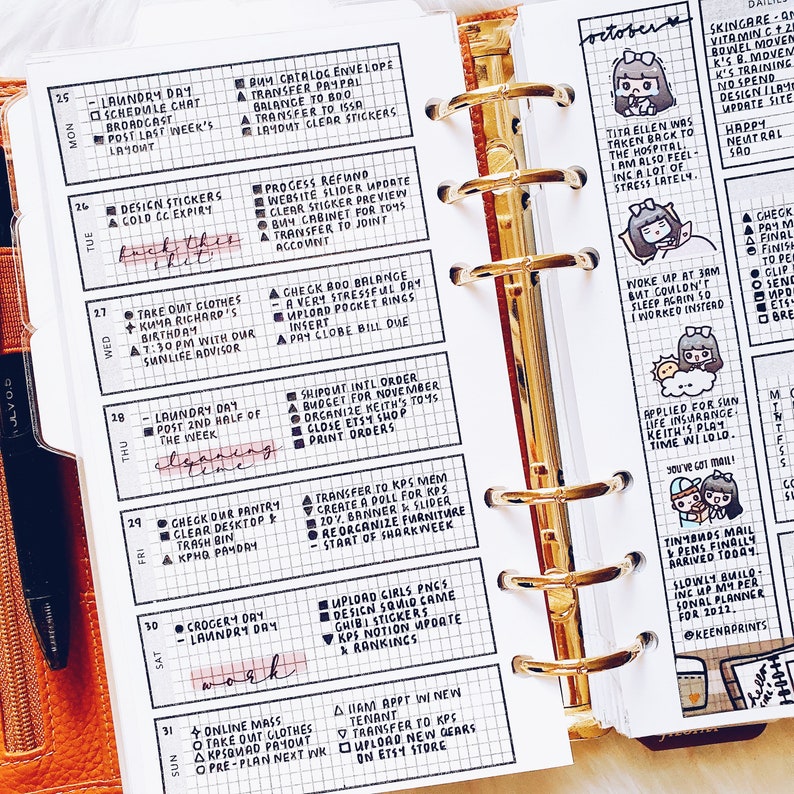 25
MON
- LAUNDRY DAY
SCHEDULE CHAT
BROADCAST
POST LAST WEEK'S
LAYOUT
BUY CATALOG ENVELOPE
TRANSFER PAYPAL
BALANCE TO BDO!
TRANSFER TO ISSA
LAYOUT CLEAR STICKERS
26
TUE
DESIGN STICKERS
GOLD CC EXPIRY
fuck this
shit!
PROCESS REFUND
WEBSITE SLIDER UPDATE
CLEAR STICKER PREVIEW
BUY CABINET FOR TOYS
TRANSFER TO JOINT
ACCOUNT
27
WED
TAKE OUT CLOTHES
KUYA RICHARD'S
BIRTHDAY
7:30 PM WITH OUR
SUNLIFE ADVISOR
CHECK BDO BALANCE
- A VERY STRESSFUL DAY
UPLOAD POCKET RINGS
INSERT
PAY GLOBE BILL DUE
28
THU
- LAUNDRY DAY
POST 2ND HALF OF
THE WEEK
cleaning
time
SHIPOUT INTL ORDER
BUDGET FOR NOVEMBER
ORGANIZE KEITH'S TOYS
CLOSE ETSY SHOP
PRINT ORDERS
29
FRI
CHECK OUR PANTRY
CLEAR DESKTOP &
TRASH BIN
KPHQ PAYDAY
TRANSFER TO KPS MEM
CREATE A DOLL FOR KPS
20% BANNER & SLIDER
REORGANIZE FURNITURE
- START OF SHARKWEEK
30
SAT
GROCERY DAY
- LAUNDRY DAY
work
UPLOAD GIRLS PNGS
DESIGN SQUID GAME
GHIBLI STICKERS
KPS NOTION UPDATE
& RANKINGS
31
SUN
ONLINE MASS
TAKE OUT CLOTHES
KPSQUAD PAYOUT
PRE-PLAN NEXT WK
11AM APPT W/ NEW
TENANT
TRANSFER TO KPS
UPLOAD NEW GEARS
ON ETSY STORE
october
TITA ELLEN WAS
TAKEN BACK TO
THE HOSPITAL.
I AM ALSO FEEL-
ING A LOT OF
STRESS LATELY.
WOKE UP AT 3AM
BUT COULDN'T
SLEEP AGAIN SO
I WORKED INSTEAD
APPLIED FOR SUN
LIFE INSURANCE.
KEITH'S PLAY
TIME W/ LOLO.
YOU'VE GOT MAIL!
TINYBUDS MAIL
& PENS FINALLY
ARRIVED TODAY.
SLOWLY BUILD-
ING UP MY PER
SONAL PLANNER
FOR 2022.
@KEENAPRINTS
hello
DAILIES
SKINCARE - AM
VITAMIN C + Z
BOWEL MOVEM
K'S B. MOVEM
K'S TRAINING
NO SPEND
DESIGN / LAYO
UPDATE SITE
HAPPY
NEUTRAL
SAD
CHECK
PAY M
FINAL
FINISH
TO PE
CLIP
SEND
UPD
ETS
BRE
M
T
S
JLV 0.5